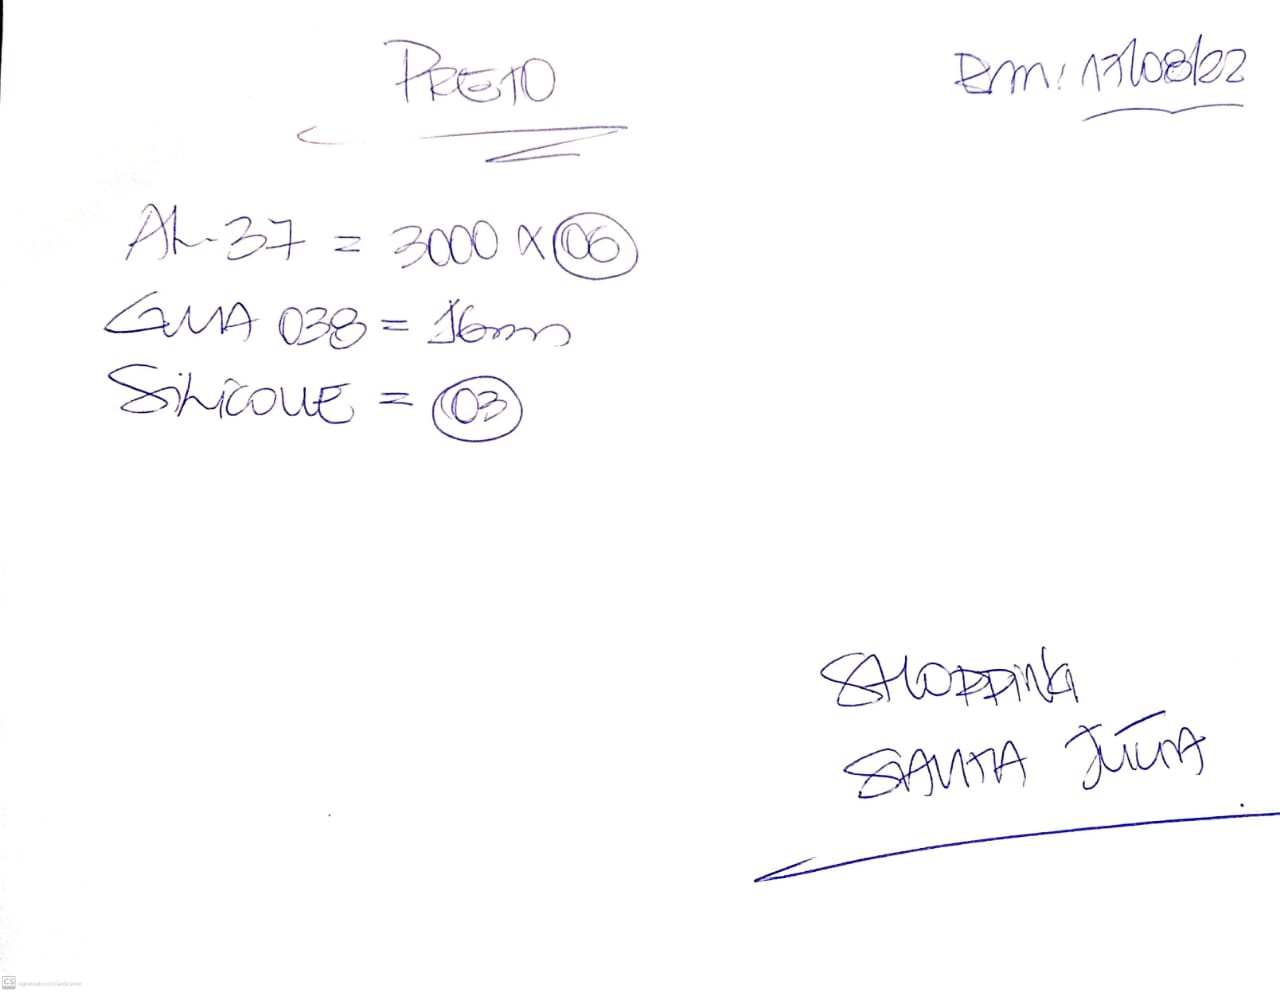 PRETO
Em: 17/08/22
AL-37 = 3000 x 06
GUA 038 = 16mm
SILICONE = 03
SHOPPING
SANTA JÚLIA
CS Digitalizado com CamScanner